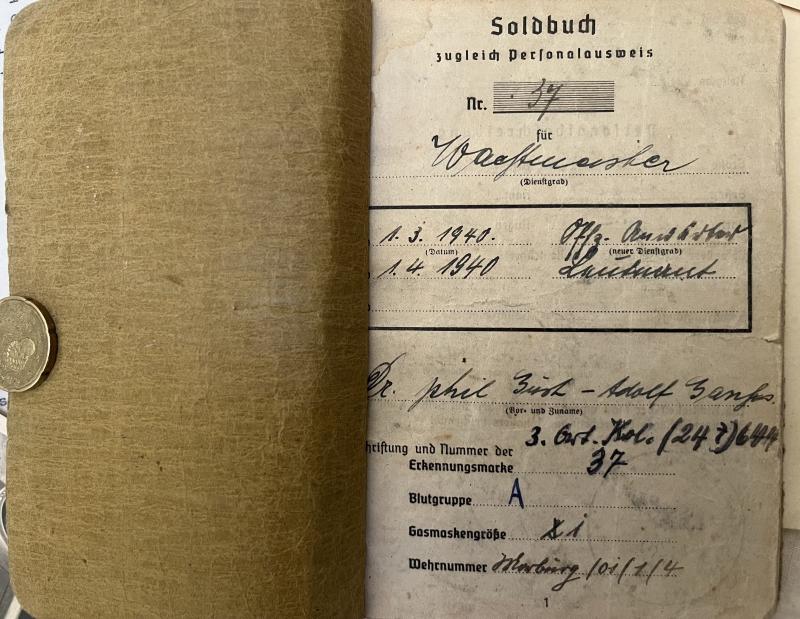 Soldbuch
zugleich Personalausweis
Nr. 37
für
Wachtmeister
(Dienstgrad)
1. 3. 1940. Offz. Anwärter
(Datum) (neuer Dienstgrad)
1. 4. 1940 Leutnant
Dr. phil - Adolf
(Vor- und Zuname)
3. Kol. (247) 644
hriftung und Nummer der
Erkennungsmarke 37
Blutgruppe A
Gasmaskengröße
Wehrnummer Marburg /01/1/4
1